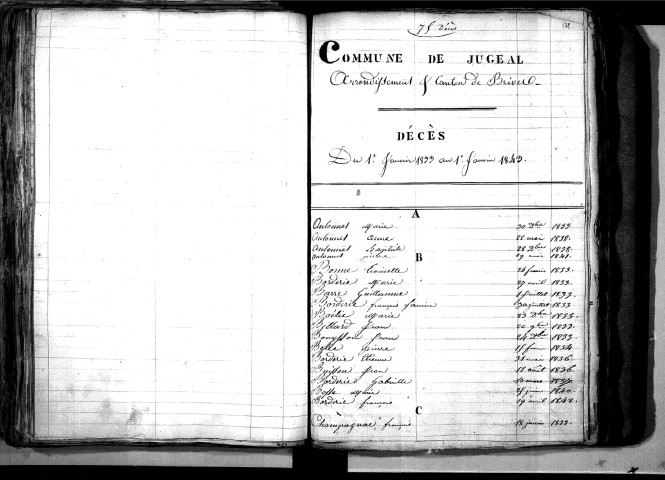 75 Décès
COMMUNE DE JUGEAL
Arrondissement & Canton de Brives
DÉCÈS
Du 1er Janvier 1833 au 1er Janvier 1843.
A
Antonnet Marie 30 Xbre 1833.
Antonnet Anne 21 mai 1838.
Antonnet Baptiste 28 Xbre 1838.
Antonnet 19 mai 1841.
B
Bonne Toinette 26 février 1833.
Borderie Marie 27 avril 1833.
Barre Guillaume Juillet 1833.
Borderie françois Janvier juillet 1833
Boëtie Marie 23 Xbre 1833.
Bélard Jean 20 9bre 1833.
Bouysson Jean 24 1833
Belle Pierre 15 février 1834
Borderie Etienne 31 mai 1836.
Buisson Jean 11 août 1836
Borderie Gabrielle 10 mars
Marie 25 juin 1840
Borderie françois 19 avril 1842.
C
Champagnac françois 18 janvier 1833.